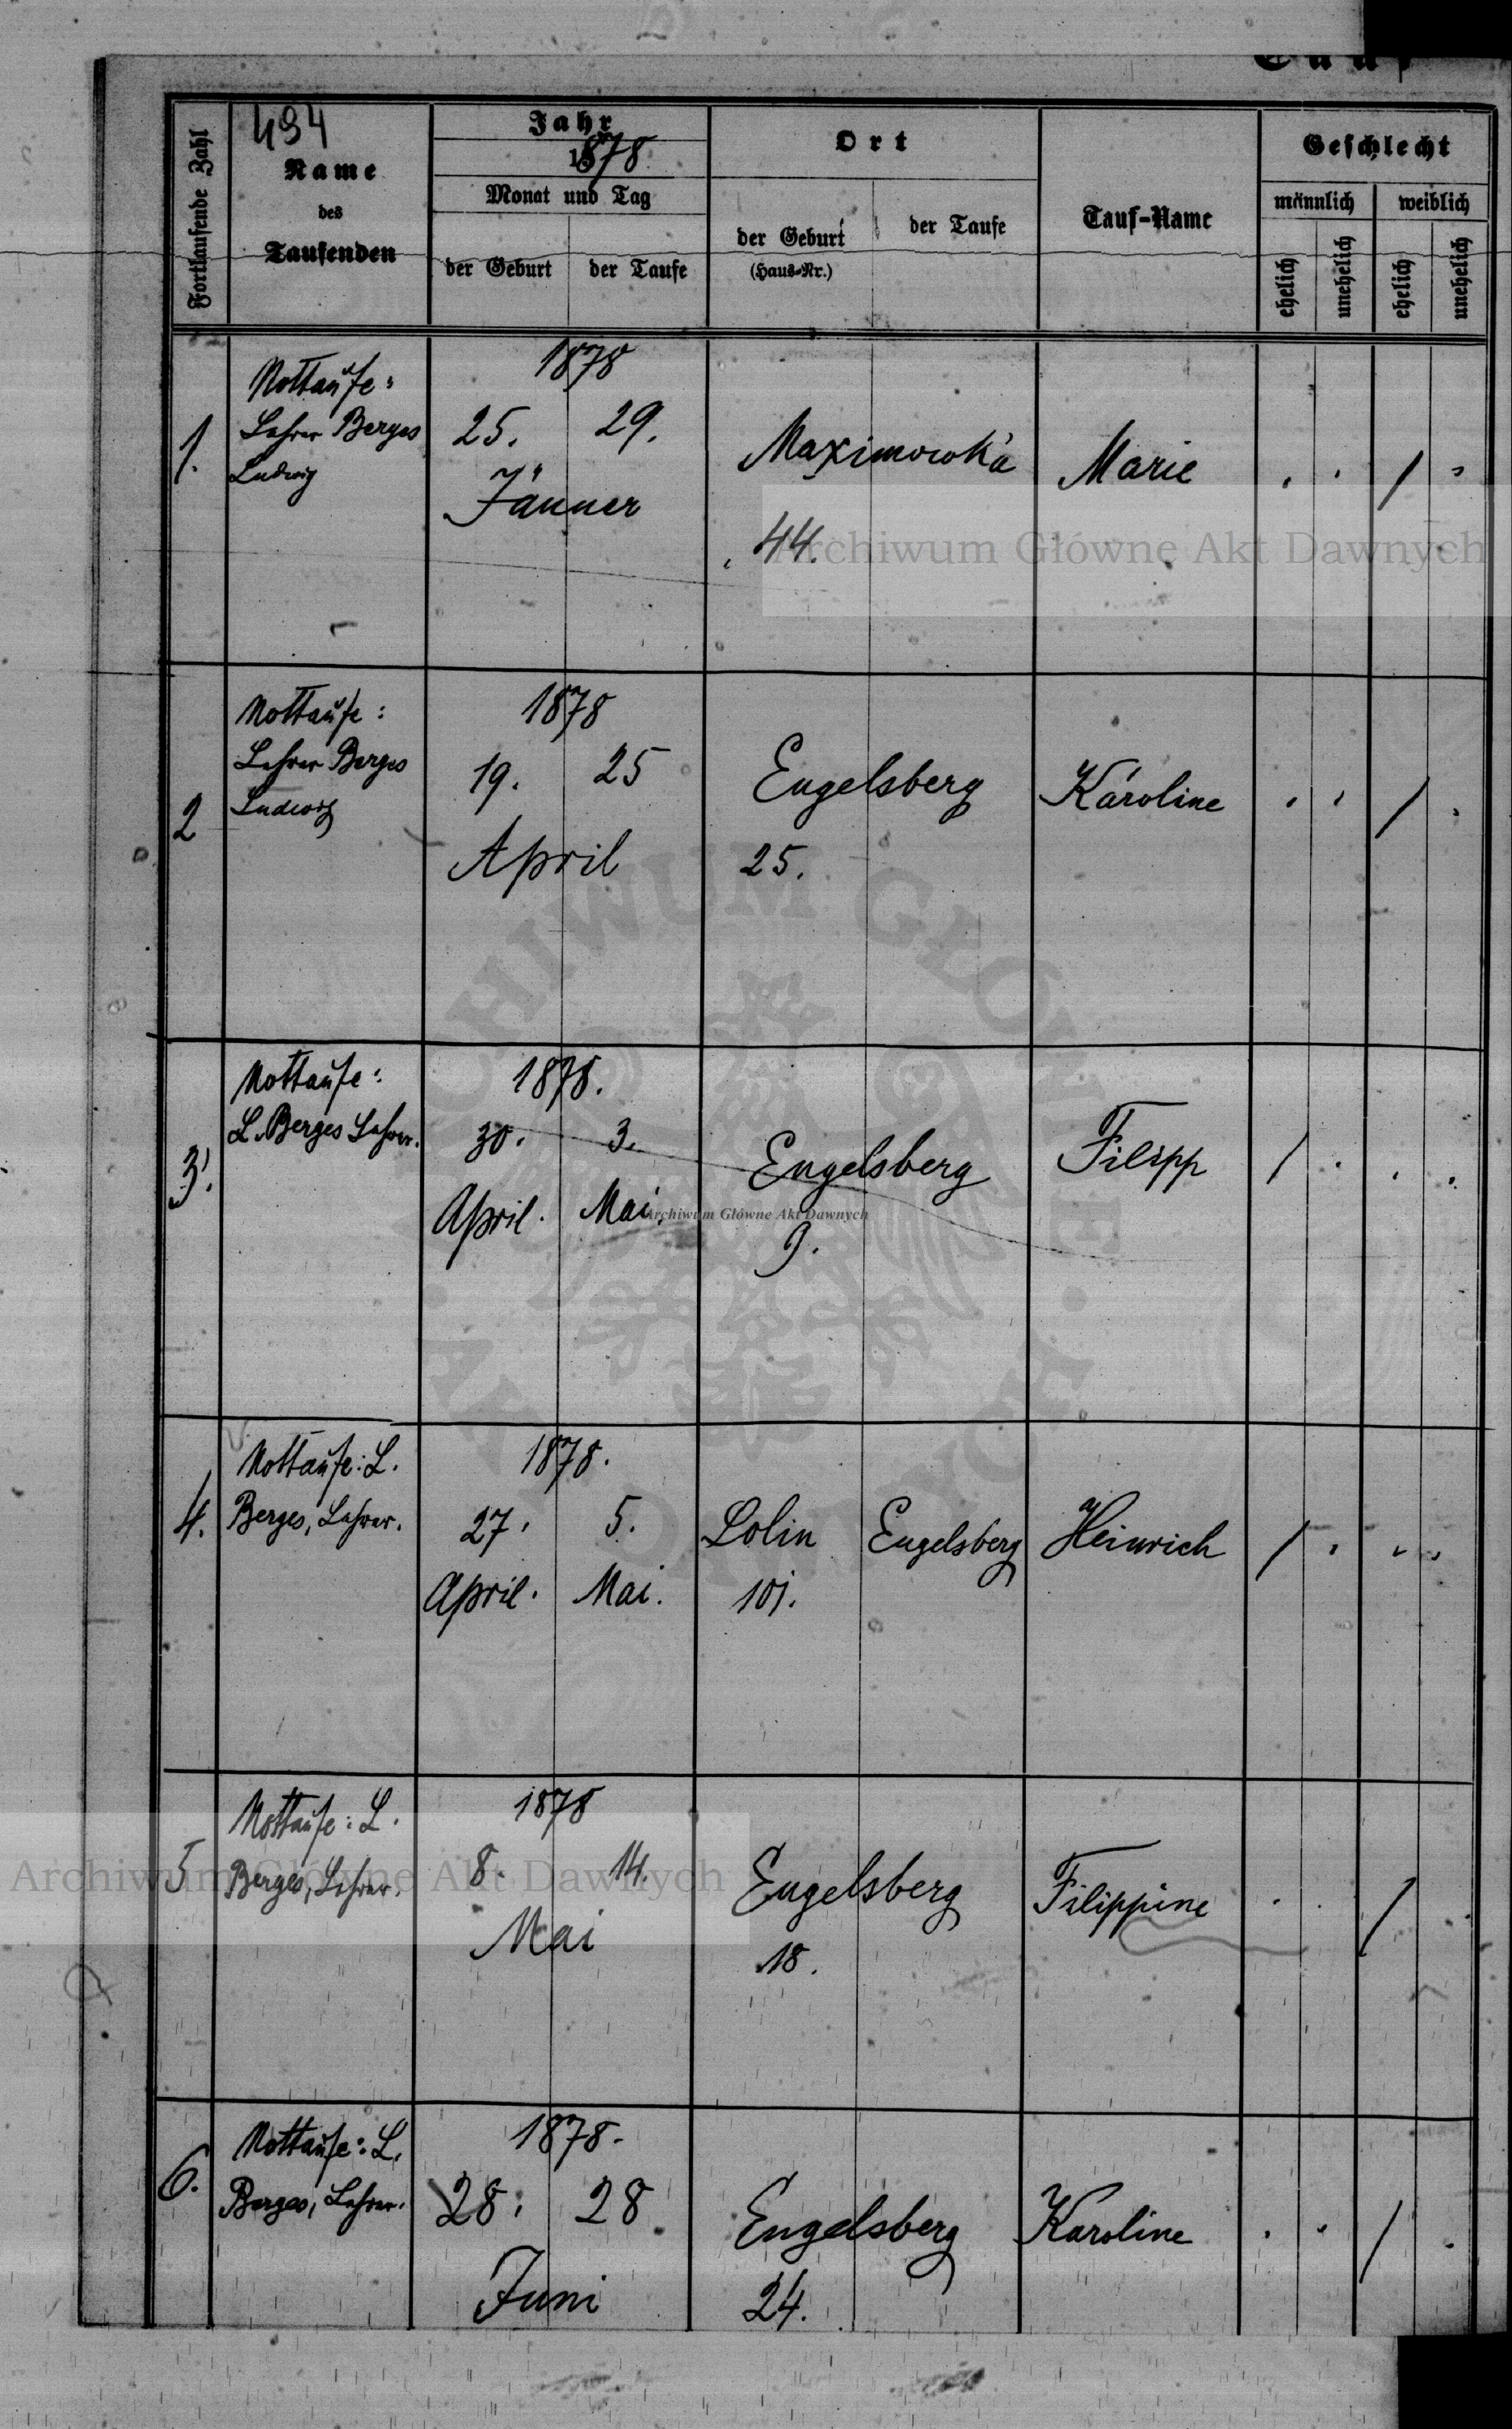 Tauf
494
Fortlaufende Zahl
Name
des
Taufenden
Jahr
1878
Monat und Tag
der Geburt
der Taufe
Ort
der Geburt
(Haus-Nr.)
der Taufe
Tauf-Name
Geschlecht
männlich
weiblich
ehelich
unehelich
ehelich
unehelich
1.
Nottaufe:
Lehrer Berges
Ludwig
1878
25. 29.
Jänner
Maximowka
44.
Marie
Archiwum Główne Akt Dawnych
2
Nottaufe:
Lehrer Berges
Ludwig
1878
19. 25
April
Engelsberg
25.
Karoline
3.
Nottaufe:
L. Berges Lehrer.
1878.
30. 3.
April. Mai.
Engelsberg
9.
Filipp
Archiwum Główne Akt Dawnych
ARCHIWUM GŁÓWNE · AKT DAWNYCH ·
4.
Nottaufe: L.
Berges, Lehrer.
1878.
27. 5.
April. Mai.
Lolin
101.
Engelsberg
Heinrich
5
Nottaufe: L.
Berges, Lehrer.
1878
8. 14.
Mai
Engelsberg
18.
Filippine
Archiwum Główne Akt Dawnych
6.
Nottaufe: L.
Berges, Lehrer.
1878.
28. 28.
Juni
Engelsberg
24.
Karoline